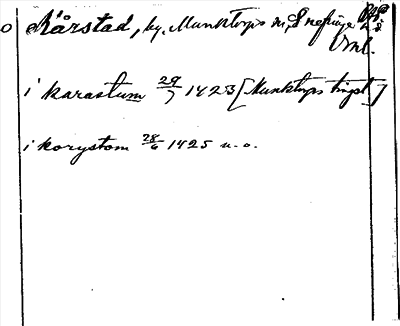 Kårstad, by, Munktorps sn, Snefringe
Vml.
i karastum 29/7 1423 [Munktorps tingst.]
i korystom 28/6 1425 u.o.